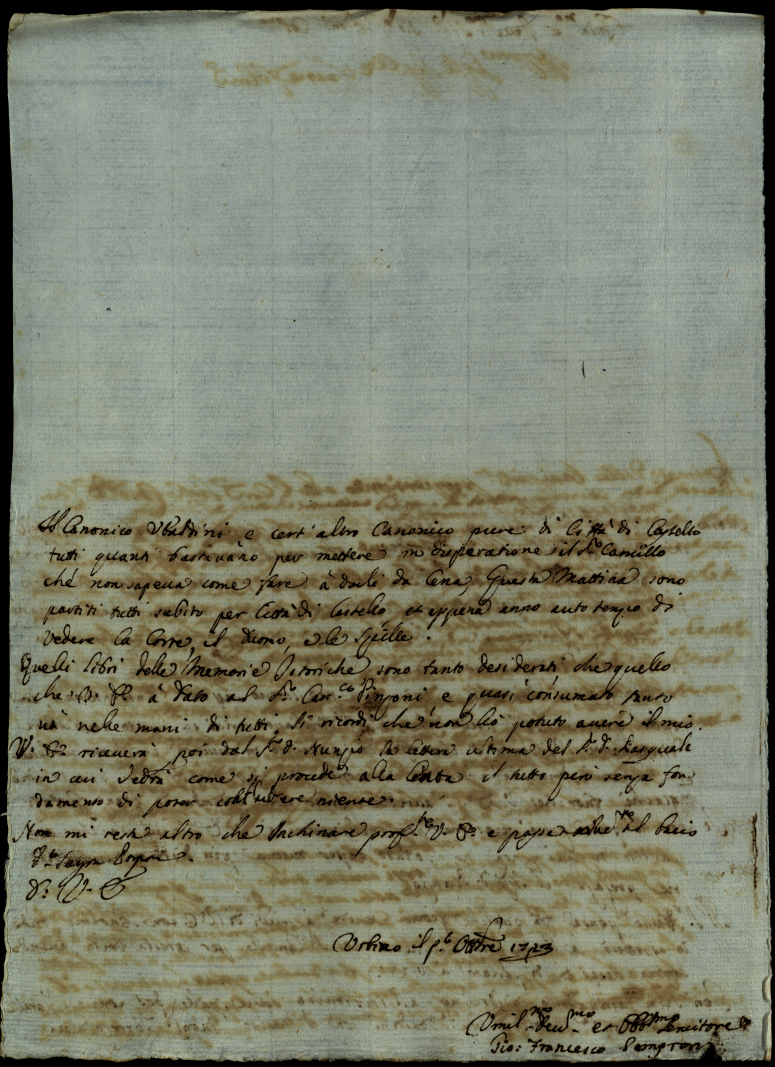 Il Canonico Ubaldini e cert'altro Canonico pure di Città di Castello
tutti quanti bastavano per mettere in disperatione il S.r Camillo
che non sapeva come fare à darli da Cena, Questa Mattina sono
partiti tutti subito per Città di Castello et appena anno auto tempo di
vedere la Corte, il Duomo, e le Spille.
Quelli Libri delle Memorie Istoriche sono tanto desiderati che quello
che à dato al S.r Can.co e quasi consumato tanto
và nelle mani di tutti, si ricordi che non hò potuto avere il mio.
V. riceverà poi dal S.r D. Nunzio la lettera ultima del S.r D. Pasquale
in cui vedrà come si procede alla il tutto però senza fon
damento di poter niente.
Non mi resta altro che Inchinare V. e al bacio
V.
Urbino il Ott.re 1723
Umil.mo et Obb.mo Servitore
Gio: Francesco Semproni